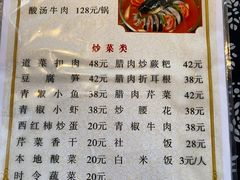 酸汤牛肉 128元/锅
炒菜类
道菜扣肉 48元 腊肉炒蕨粑 42元
豆腐笋 42元 腊肉折耳根 38元
青椒小鱼 38元 腊肉芹菜 42元
青椒小虾 38元 炒腰花 38元
西红柿炒蛋 20元 青椒牛肉 38元
芹菜香干 20元 社饭 28元
本地酸菜 20元 白米饭 3元/人
时令蔬菜 20元